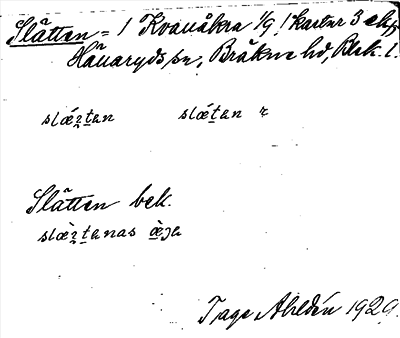 Slätten = 1 Kvanåkra 1/9 / kartur 3 ekpl
Hällaryds sn, Bräkne hd, Blek. l.
slǽt̠an slǽt̠an
Slätten bek.
slæ̀t̠anas æ̠̀ja
Tage Ahldén 1929.